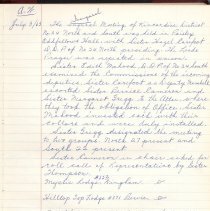 A.F.
July 3/63 The Special Meeting of Kincardine District
No 24 North and South was held in Purdy
Oddfellows Hall with Sister Hazel Corbet
D.D.P of No 24 North presiding. The Lords
Prayer was repeated in unison.
Sister Edith Mahood D.D.P of No 24 South
examined the Commissions of the incoming
Deputies. Sister Corbet as Deputy Marshal
escorted Sister Bernice Cameron and
Sister Margaret Trigg to the Altar where
they took the obligation of office. Sister
Mahood invested each with their
Collars and were duly installed.
Sister Trigg designated the meeting
in two groups. North 27 present and
South 23 present
Sister Cameron in chair asked for
roll call of Representatives by Sister
Thompson.
Mystic Lodge Wingham
Hilltop Lodge #271